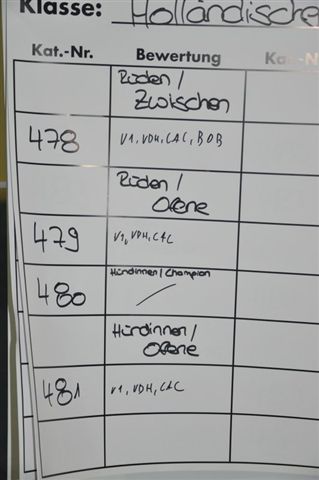 Klasse: Holländische
Kat.-Nr. Bewertung Kat.-N
Rüden /
Zwischen
478 V1, VDH, CAC, BOB
Rüden /
Offene
479 V1, VDH, CAC
Hündinnen / Champion
480 /
Hündinnen /
Offene
481 V1, VDH, CAC